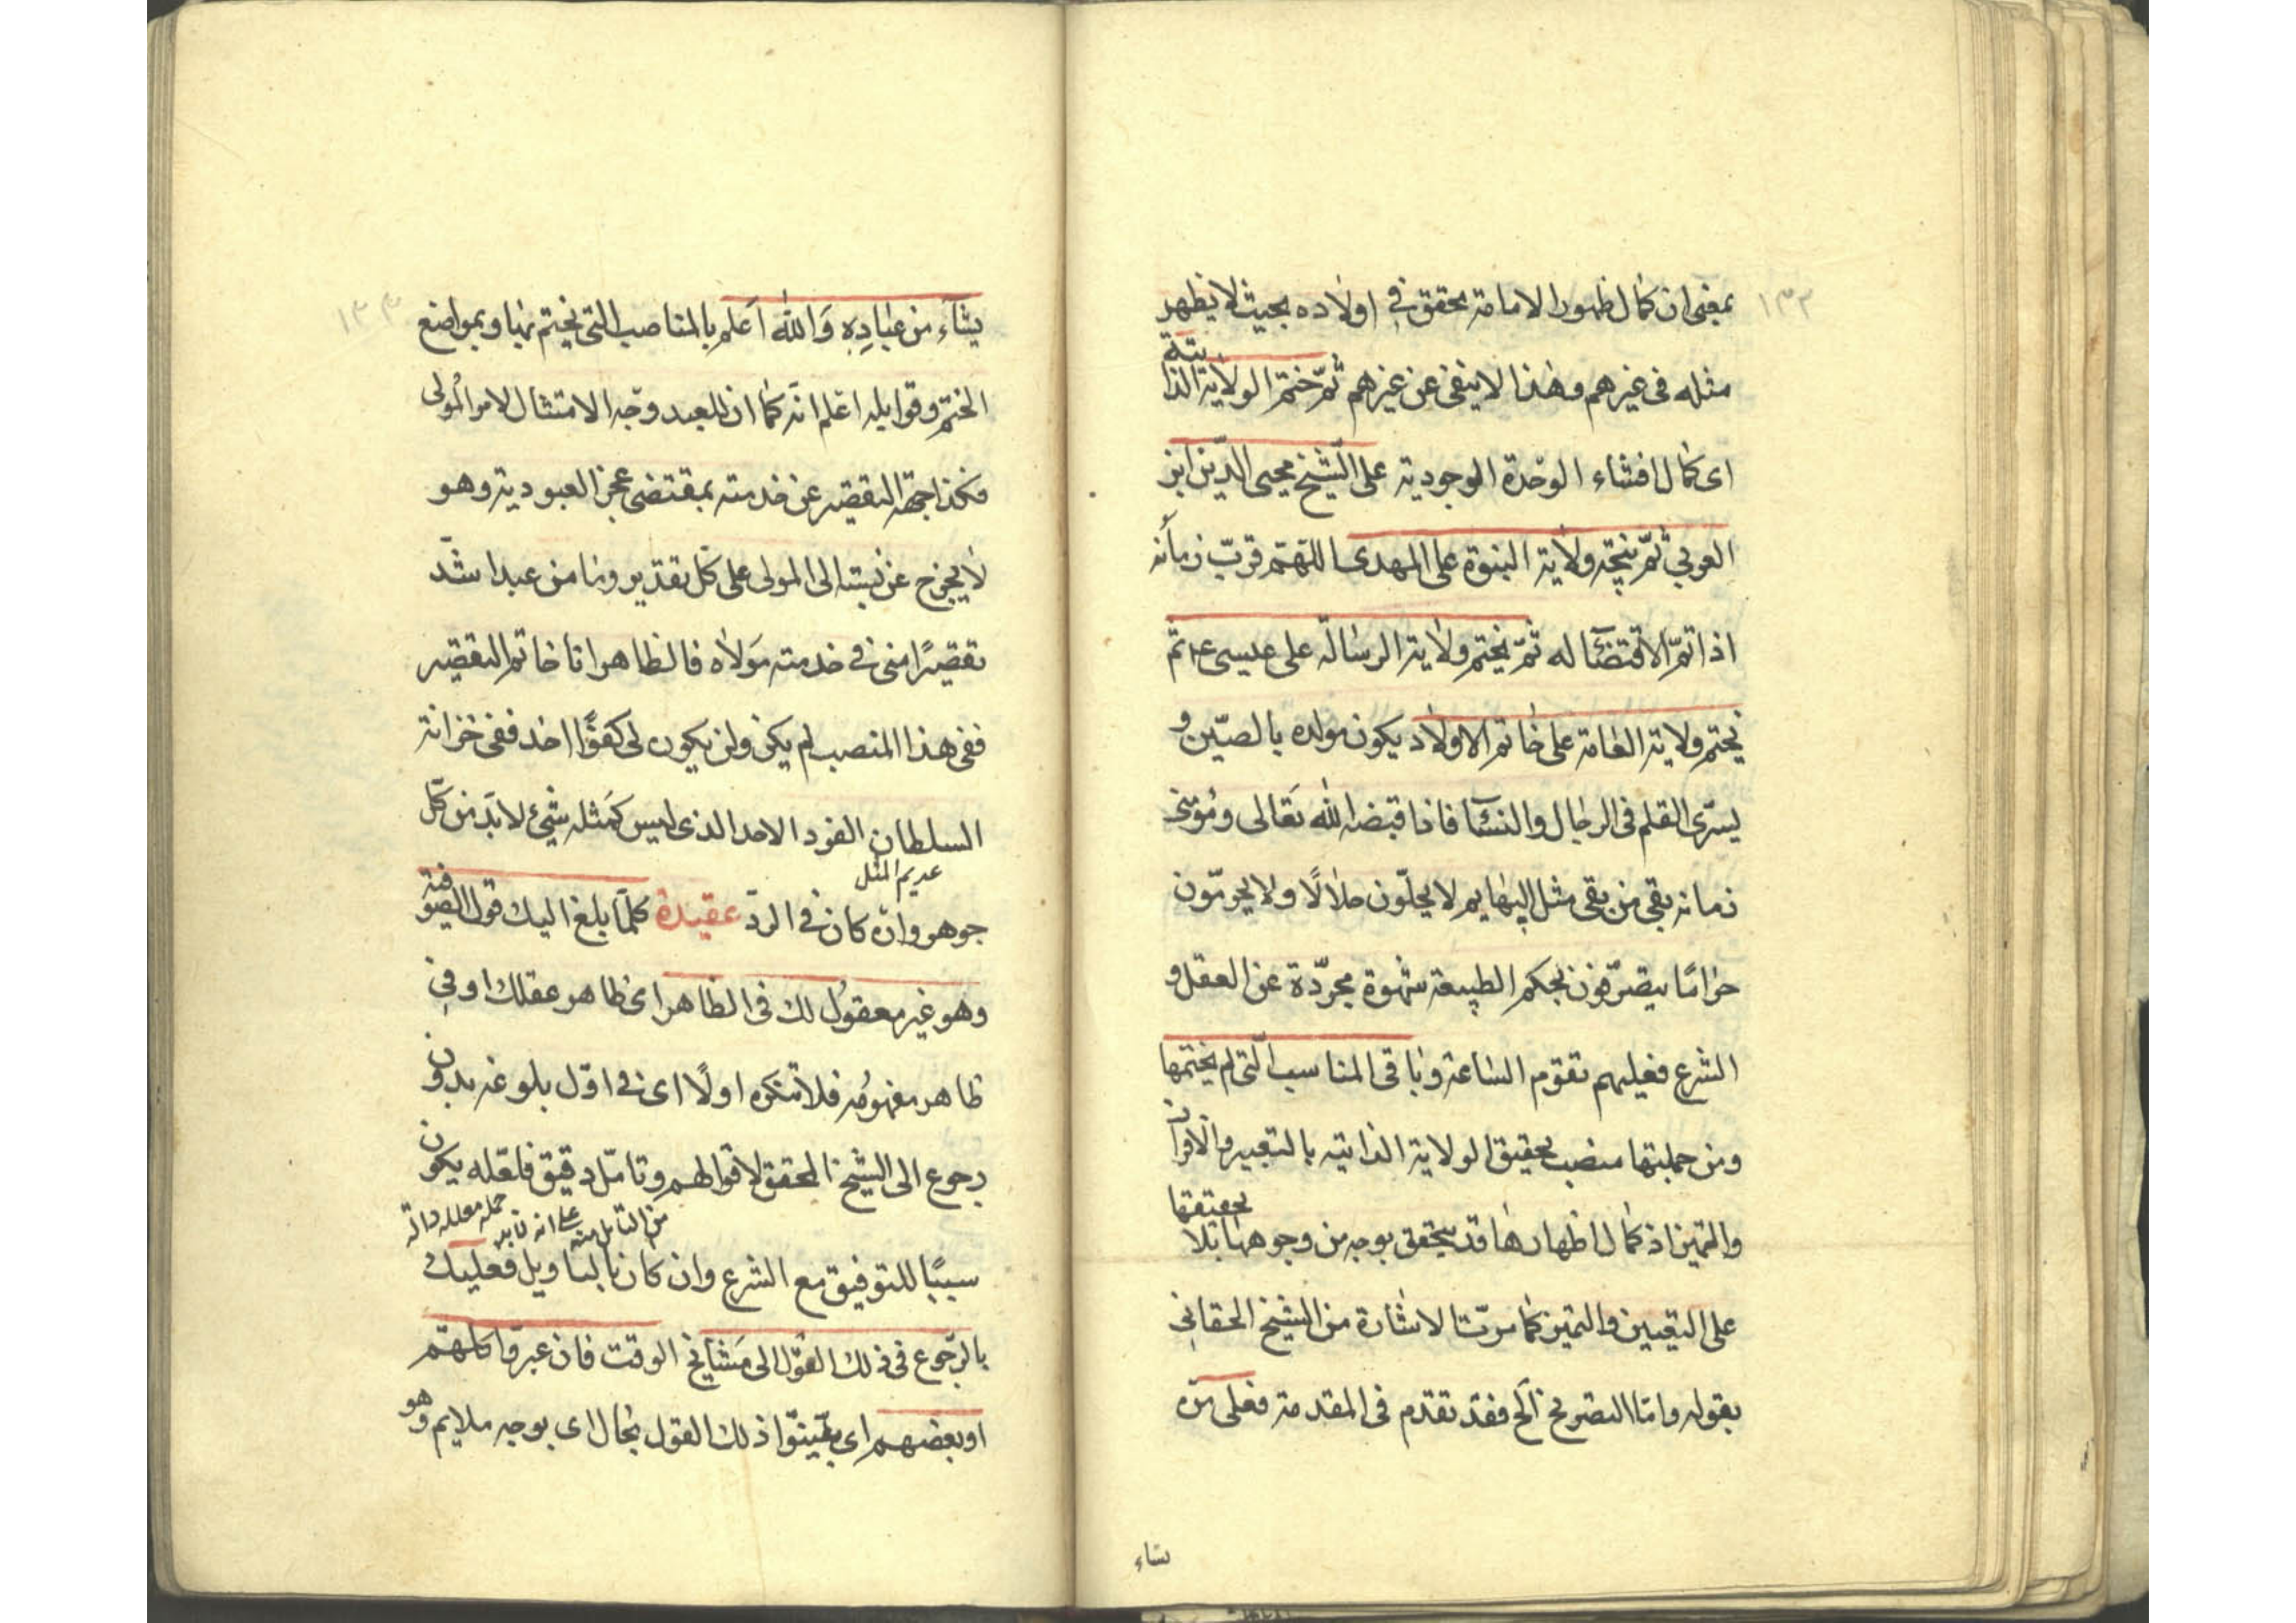 ١٣٢
بمعنى ان كمال ظهور الامامة تحقق فى اولاده بحيث لا يظهر
مثله فى غيرهم وهذا لا ينفى عن غيرهم ثمّ ختم الولاية الذا
تية
اى كمال افشاء الوحدة الوجودية على الشيخ محيى الدين ابن
العربي ثمّ يختم ولاية النبوة على المهدى اللهمّ قرّب زمانه
اذا تمّ الاقتضاء له ثمّ يختم ولاية الرسالة على عيسى عم ثم
يختم ولاية العامة على خاتم الاولاد يكون مولده بالصّين و
يسرى القلم فى الرجال والنساء فاذا قبضه الله تعالى ومؤمنى
زمانه بقى من بقى مثل البهايم لا يحلّون حلالًا ولا يحرمّون
حرامًا يتصرّفون بحكم الطبيعة شهوة مجرّدة عن العقل و
الشرع فعليهم تقوم الساعة وباقى المناسب التى لم يختمها
ومن جملتها منصب تحقيق الولاية الذاتية بالتعبير والاقران
والتميز اذ كمال اظهارها قد يتحقق بوجه من وجوهها بلا
تحققها
على التعيين والتميز كما مرّت الاشارة من الشيخ الحقانى
بقوله وامّا التصريح الخ فقد تقدم فى المقدمة فعلى منّه
شاء
١٣٣
يشاء من عباده والله اعلم بالمناصب التى يختم بها وبمواضع
الختم وقوابله اعلم انّه كما ان للعبد وجه الامتثال لامر المولى
فكذا جهة التقصير عن خدمته بمقتضى عجز العبودية وهو
لا يخرج عن نسبته الى المولى على كل تقدير وما من عبد اشدّ
تقصيرًا منى فى خدمته مولاه فالظاهر انا خاتم التقصير
ففى هذا المنصب لم يكن ولن يكون لى كفوًا احد ففى خزانة
السلطان الفرد الاحد الذى ليس كمثله شئ لا بدّ من كلّ
عديم المثل
جوهر وان كان فى الردّ عقيدة كلّما بلغ اليك قول الصو
فية
وهو غير معقول لك فى الظاهر اى ظاهر عقلك او فى
ظاهر مفهومه فلا تنكره اولًا اى فى اوّل بلوغه بدون
رجوع الى الشيخ المحقق لاقوالهم وتامّل دقيق فلعّله يكون
سببًا للتوفيق مع الشرع وان كان بالتاويل فعليك
بالرّجوع فى ذلك القول الى مشايخ الوقت فان عبرّوا كلهمّ
او بعضهم اى بيّنوا ذلك القول بحال اى بوجه ملايم وهو